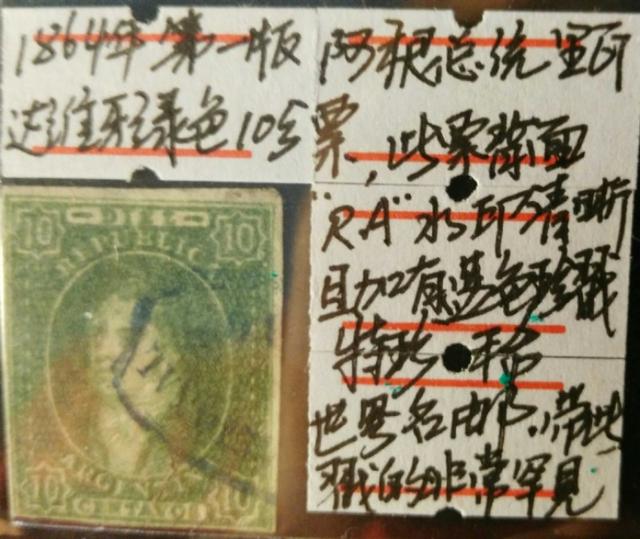 1864年第一版 阿根总统里瓦
达维牙绿色10分票,此票除面
"RA"水印清晰
且加有蓝色珍戳
特珍稀
世界名邮.带此
戳的非常罕见
10 10
REPUBLICA
10 10